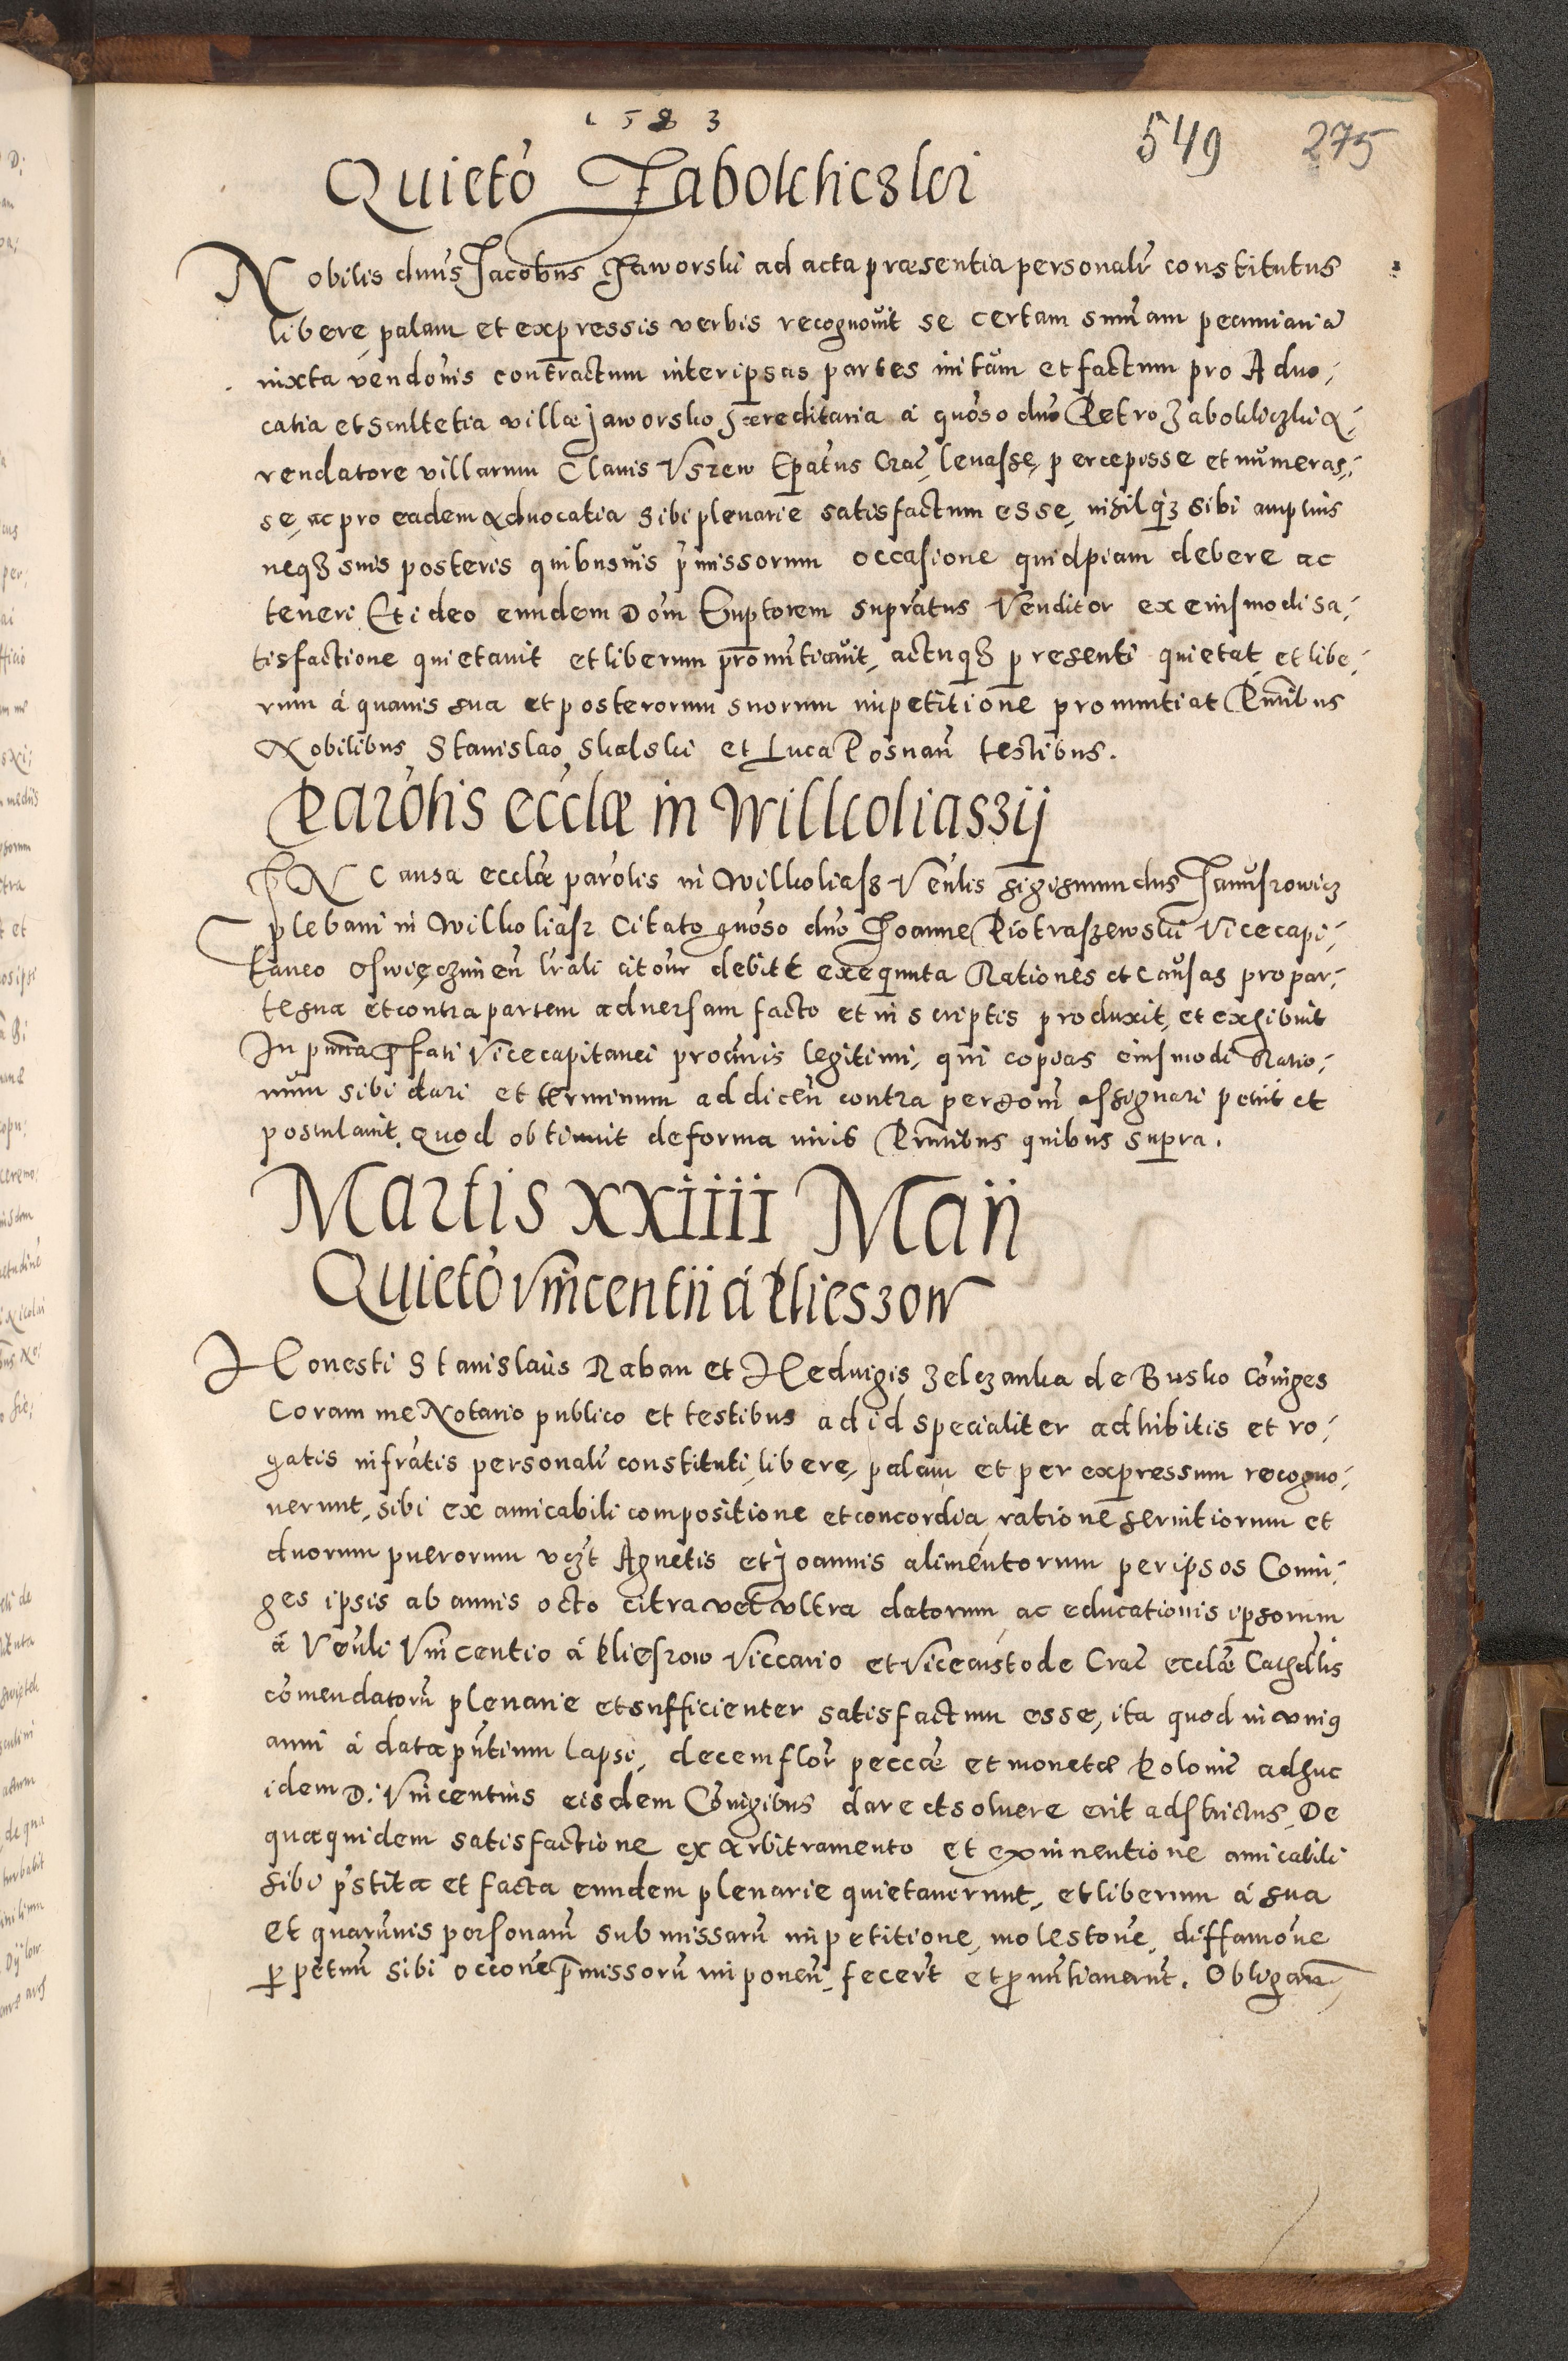 1583
549 275
Quieto Zabokliczki
Nobilis dnus Jacobus Jaworski ad acta præsentia personalr constitutus
libere palam et expressis verbis recognovit se certam summam pecuniariā
iuxta vendonis contractum inter ipsas partes initum et factum pro Advo-
catia et Scultetia villæ Jaworsko hæreditaria à gnoso dno Petro Zabokliczki A-
rendatore villarum Clavis Uszew Epatus Crac, levasse, percepisse et numeras-
se, ac pro eadem Advocatia sibi plenarie satisfactum esse, nihilq3 sibi amplius
neq3 suis posteris quibusvis pmissorum occasione quidpiam debere ac
teneri Et ideo eundem Dom Emptorem supratus Venditor ex eiusmodi sa-
tisfactione quietavit et liberum pronuntiavit, actuq3 presenti quietat et libe-
rum à quavis sua et posterorum suorum impetitione pronuntiat Pntibus
Nobilibus Stanislao Skalski et Luca Posnan testibus.
Parohis ecclæ in Wilkoliaszij
IN Causa ecclæ parolis in Wilkoliasz Venlis Sigismundus Janusrowicz
plebani in Wilkoliasz Citato gnoso dno Joanne Piotraszewski Vicecapi-
taneo Oswięczimen lrali citour debitt exequuta Rationes et Causas pro par-
te sua et contra partem adversam facto et in scriptis produxit, et exhibuit
In pntia pfati Vicecapitanei procuris legitimi, qui copias eiusmodi Ratio-
num sibi dari et terminum ad dicen contra per dom assignari petiit et
postulavit. quod obtinuit de forma iuris Pntibus quibus supra.
Martis XXIIII Maii
Quieto Vincentii à Klieszow
Honesti Stanislaus Raban et Hedvigis Zelezanka de Busko Coniuges
Coram me Notario publico et testibus ad id specialiter adhibitis et ro-
gatis infratis personalr constituti, libere, palam et per expressum recogno-
verunt, sibi ex amicabili compositione et concordia ratione servitiorum et
duorum puerorum vczt Agnetis et Joannis alimentorum per ipsos Coniu-
ges ipsis ab annis octo citra vel ultra datorum, ac educationis ipsorum
à Venli Vincentio à Klieszow Viccario et Vicecustode Crac ecclæ Cathedlis
comendatorū plenarie et sufficienter satisfactum esse, ita quod in unius
anni à data pntium lapsi, decem flor peccæ et monetæ Polonic adhuc
idem D. Vincentius eisdem Coniugibus dare et solvere erit adstrictus. De
qua quidem satisfactione ex Arbitramento et ex inventione amicabili
sibi pstita et facta eundem plenarie quietaverunt, et liberum à sua
et quarumvis personarū submissarū impetitione, molestone, diffamone
perpetuū sibi occone pmissorū imponen, fecert et pnuntiaverunt. Obligan